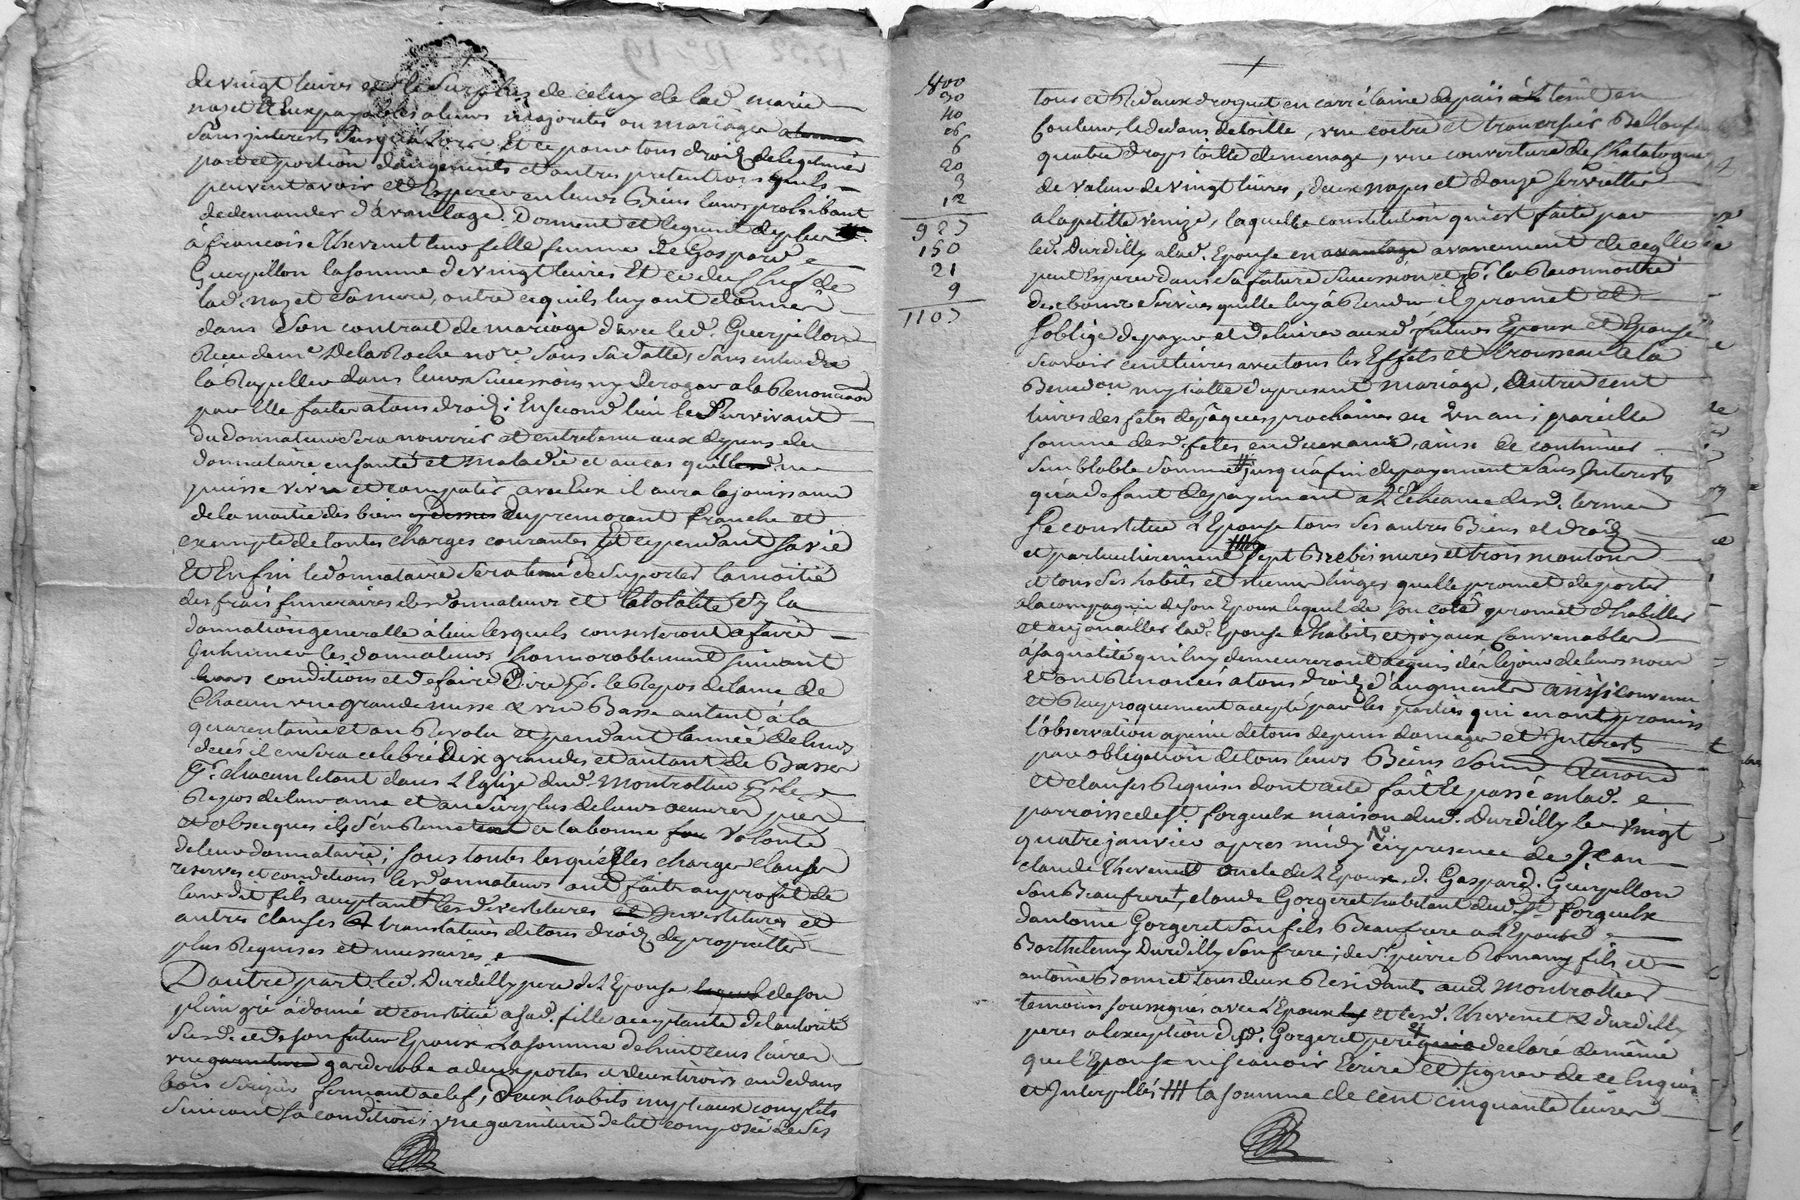 de vingt livres et le Surplus de celuy de lad. marie
nazet Et Eux payables a leurs majorités ou mariages
Sans interests Jusqu'à Lors. Et ce pour tous droits de legitime
part et portion d'augments et autres pretentions quils
peuvent avoir et Esperer en leurs Biens leurs prohibant
de demander d'avantage. Donnent et leguent de plus
à françoise Thevenet leur fille femme de Gaspard
Guerpillon la somme de vingt livres Et ce du Chef de
lad. nazet Sa mere, outre ce quils luy ont donné
dans Son contrat de mariage d'avec led. Guerpillon
Receu de me Delaroche nore. Sans Sa datte, Sans entendre
la Rappeller dans leurs Successions ny deroger a la Renonciation
par Elle faite a tous droits; En second lieu le Survivant
du donnateurs Sera nourris et entretenu aux depens du
donnataire en santé et maladie et au cas quil ne
puisse vivre et compatir avec Eux il aura la jouissance
de la moitié des biens du premorant franche et
exempte de toutes charges courantes et ce pendant Sa vie
Et Enfin le donnataire Sera tenu de Suporter la moitié
des frais funeraires des donnateurs et la totalité
donnation generalle à lieu lesquels consisteront a faire
Inhumer les donnateurs honnorablement suivant
leurs conditions et de faire Dire pr. le Repos de lame de
Chacun une grande messe & une Basse autant à la
quarantaine et au Revolu Et pendant l'année de leurs
deces il en sera celebré Dix grandes et autant de Basses
pr. chacun le tout dans L'Eglise dud. Montrottier pr le
Repos de leur ame et au Surplus de leurs oeuvres pies
et obseques ils s'en Remettent a la bonne volonté
de leur donnataire; sous toutes lesquelles charges clauses
reserves et conditions les donnateurs ont fait au profit de
leur dit fils acceptant les devestitures Investitures et
autres clauses & translatives de tous droits de propriété
plus Requises et necessaires.
D'autre part led. Durdilly pere de L'Epouse de Son
plein gré à donné et constitué a Sad. fille acceptante de l'autorité
Susd. et de son futur Epoux La somme de huit cens livres
une garderobe a deux portes et deux tiroirs en dedans
bois Sapin fermant a clef, Deux habits nuptiaux complets
Suivant Sa condition; une garniture de lit composée de Ses
400
30
40
6
20
3
12
150
21
9
tour et Rideaux droguet en carré laine de païs teint en
Couleur, le dedans de toille, une coetre et traversier
quatre draps toille de menage, une couverture de Chatalogne
de valeur de vingt livres, deux napes et douze serviettes
a la petite venize, laquelle constitution qui est faite par
led. Durdilly a lad. Epouse en avancement de ce qu'elle
peut Esperer dans Sa future Succession et pr. la Reconnoitre
des bons Services quelle luy à Rendu il promet et
S'oblige de payer et delivrer auxd. futurs Epoux et Epouse
Scavoir cent livres avec tous les Effets et trousseau à la
Benedion. nuptialle du present mariage, Autre cent
livres des fetes de pâques prochaines en un an; pareille
somme desd. fetes en deux année, ainsi de continuer
Semblable Somme jusqu'a fin de payement Sans Interests
qu'a defaut de payement a L'Echeance desd. termes
Se constitue L'Epouse tous Ses autres Biens et droits
et particulierement sept Brebis meres et trois moutons
et tous Ses habits et menus linges quelle promet de porter
a la compagnie de son Epoux lequel de son coté promet d'habiller
et enjouailler lad. Epouse d'habits et joyaux Convenables
à Sa qualité qui luy demeureront acquis dès le jour de leurs noces
Et ont Renoncés a tous droits d'augments ainsi convenu
et Reciproquement accepté par les parties qui en ont promis
l'observation a peine de tous depens domages et Interests
par obligation de tous leurs Biens
et clauses Requises dont acte fait et passé en lad.
parroisse de St. forgeulx maison dud. Durdilly le vingt
quatre janvier apres midy en presence de Jean
claude Thevenet oncle de L'Epoux, d. Gaspard Guerpillon
Son Beaufrere, claude Gorgeret habitant dud. St. forgeulx
d'antoine Gorgeret Son fils Beaufrere a L'Epouse
Barthelemy Durdilly Son frere; de Sr. pierre Romany fils et
antoine Bonnet tous deux Residants aud. Montrottier
temoins soussignés avec L'Epoux et lesd. Thevenet & durdilly
peres a l'exception dud. Gorgeret pere declaré de même
que l'Epouse ne scavoir Ecrire et signer de ce Enquis
et Interpellés la somme de cent cinquante livres